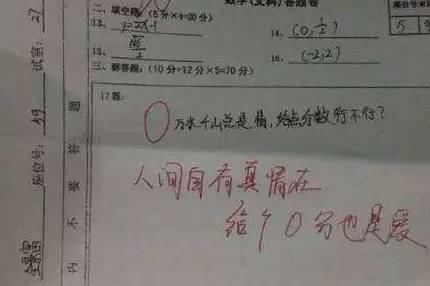 数学(文科)答题卷
二、填空题:(5分×4=20分)
13. y=2x-1
14. (0,1/2)
15. √6/2
16. (-2,2)
三、解答题:(10分+12分×5=70分)
17题:
0
万水千山总是情,给点分数行不行?
人间自有真情在
给个0分也是爱
试室: 27
座位号: 29
内 不 要 答 题